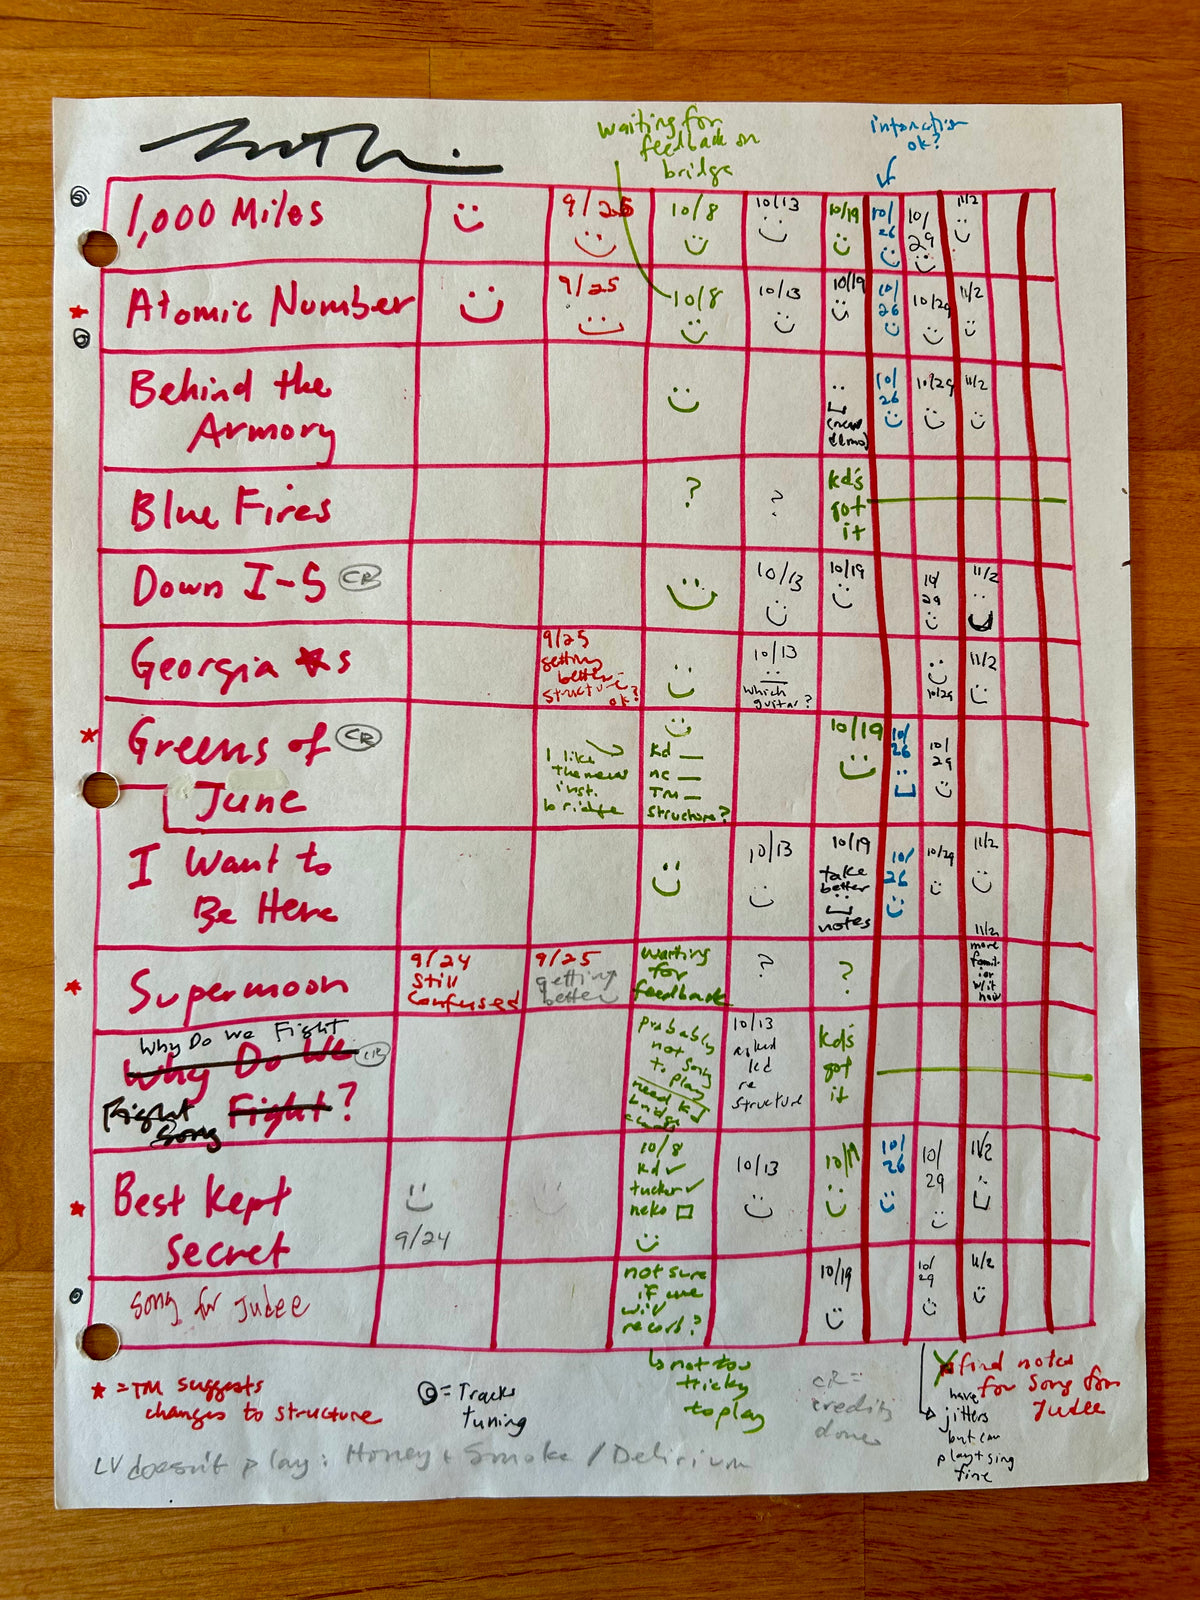 waiting for
feedback on
bridge
intonation
ok?
1,000 Miles
9/25
10/8
10/13
10/19
10/
26
10/
29
11/2
Atomic Number
9/25
10/8
10/13
10/19
10/
26
10/29
11/2
Behind the
Armory
(new
demo)
10/
26
10/29
11/2
Blue Fires
?
?
kd's
got
it
Down I-5 CR
10/13
10/19
10/
29
11/2
Georgia s
9/25
getting
better-
structure
ok?
10/13
which
guitar?
10/29
11/2
Greens of CR
June
I like
the new
inst.
bridge
kd —
nc —
TM —
structure?
10/19
10/
26
10/
29
I Want to
Be Here
10/13
10/19
take
better
notes
10/
26
10/29
11/2
Supermoon
9/24
still
confused
9/25
getting
better
waiting
for
feedback
?
?
11/2
more
famil-
iar
w/it
now
Why Do We Fight
Why Do We CR
Fight Fight?
Song
probably
not song
to play
need kd
bridge
10/13
asked
kd
re
structure
kd's
got
it
Best Kept
Secret
9/24
10/8
kd ✓
tucker ✓
neko □
10/13
10/19
10/
26
10/
29
11/2
Song for Judee
not sure
if we
will
record?
10/19
10/
29
11/2
↳ not too
tricky
to play
* = TM suggests
changes to structure
= Tracks
tuning
CR =
credits
done
find notes
for Song for
Judee
have
jitters
but can
play + sing
fine
LV doesn't play: Honey + Smoke / Delirium